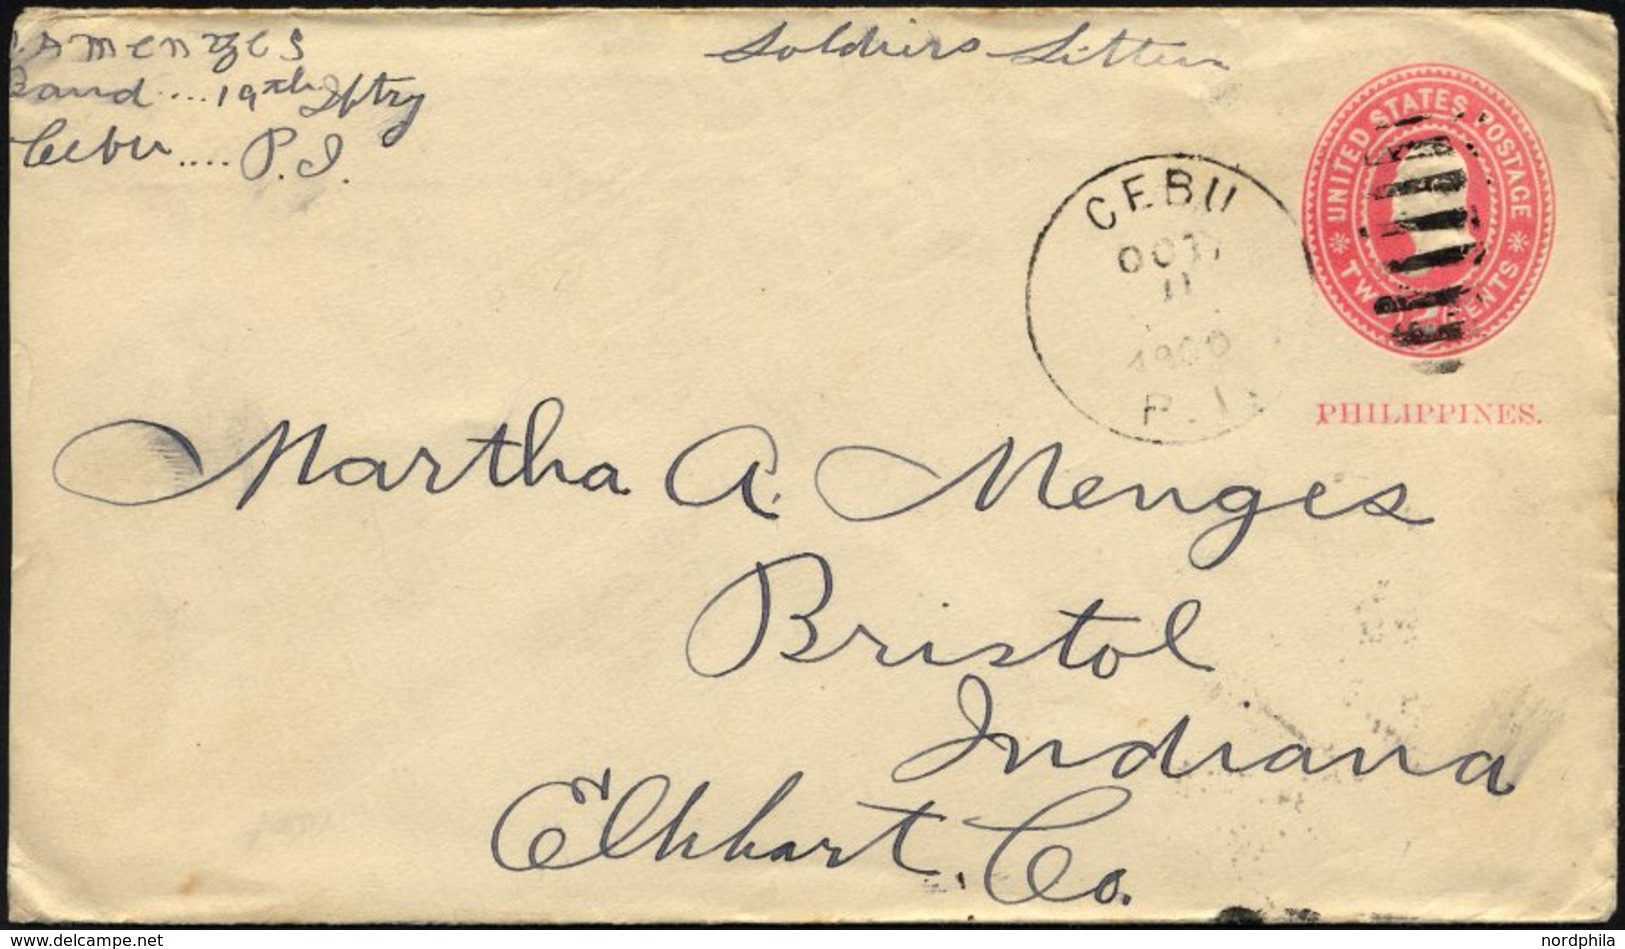 Menges
Band ... 19th Iftry
Cebu .... P. I.
Soldiers Letter
UNITED STATES POSTAGE
TWO CENTS
CEBU
OCT
11
1900
P. I.
PHILIPPINES.
Martha A. Menges
Bristol
Indiana
Elkhart. Co.
nordphila